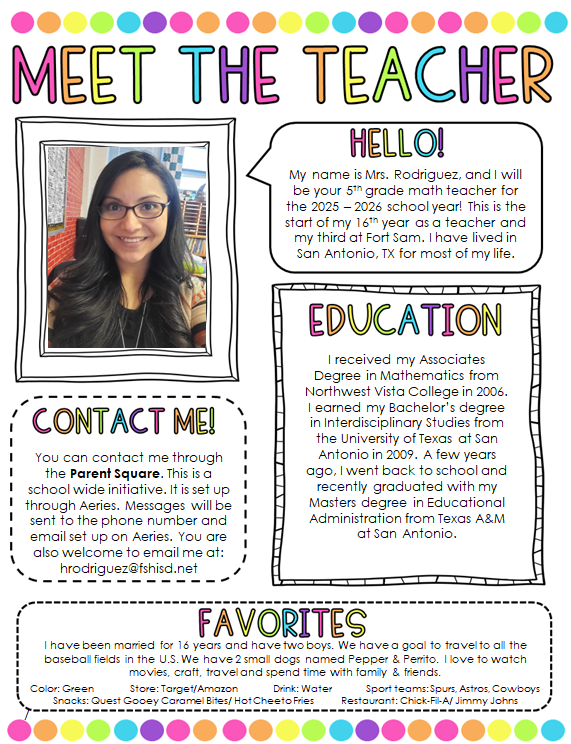 MEET THE TEACHER
HELLO!
My name is Mrs. Rodriguez, and I will
be your 5th grade math teacher for
the 2025 – 2026 school year! This is the
start of my 16th year as a teacher and
my third at Fort Sam. I have lived in
San Antonio, TX for most of my life.
EDUCATION
I received my Associates
Degree in Mathematics from
Northwest Vista College in 2006.
I earned my Bachelor’s degree
in Interdisciplinary Studies from
the University of Texas at San
Antonio in 2009. A few years
ago, I went back to school and
recently graduated with my
Masters degree in Educational
Administration from Texas A&M
at San Antonio.
CONTACT ME!
You can contact me through
the Parent Square. This is a
school wide initiative. It is set up
through Aeries. Messages will be
sent to the phone number and
email set up on Aeries. You are
also welcome to email me at:
hrodriguez@fshisd.net
FAVORITES
I have been married for 16 years and have two boys. We have a goal to travel to all the
baseball fields in the U.S. We have 2 small dogs named Pepper & Perrito. I love to watch
movies, craft, travel and spend time with family & friends.
Color: Green Store: Target/Amazon Drink: Water Sport teams: Spurs, Astros, Cowboys
Snacks: Quest Gooey Caramel Bites/ Hot Cheeto Fries Restaurant: Chick-Fil-A/ Jimmy Johns